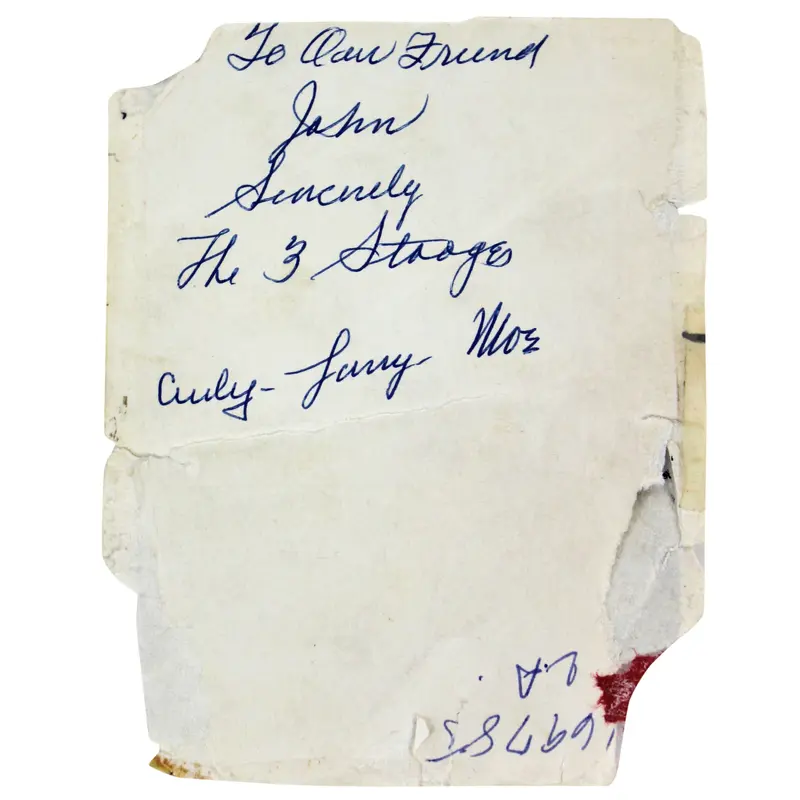 To Our Friend
John
Sincerely
The 3 Stooges
Curly - Larry Moe
L.A.